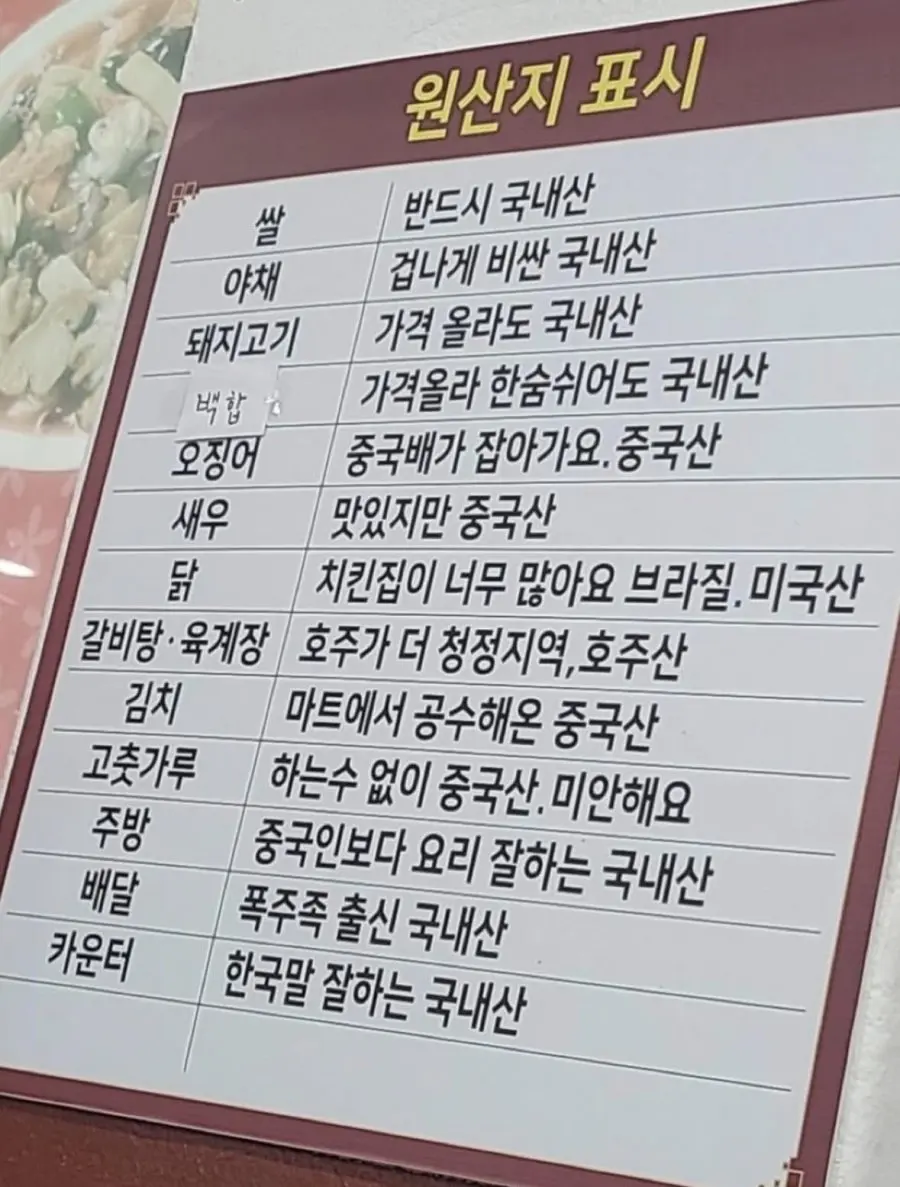 원산지 표시
쌀 반드시 국내산
야채 겁나게 비싼 국내산
돼지고기 가격 올라도 국내산
백합 가격올라 한숨쉬어도 국내산
오징어 중국배가 잡아가요.중국산
새우 맛있지만 중국산
닭 치킨집이 너무 많아요 브라질.미국산
갈비탕·육계장 호주가 더 청정지역,호주산
김치 마트에서 공수해온 중국산
고춧가루 하는수 없이 중국산.미안해요
주방 중국인보다 요리 잘하는 국내산
배달 폭주족 출신 국내산
카운터 한국말 잘하는 국내산